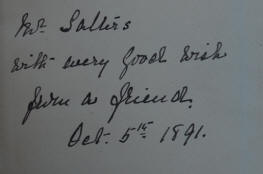 Mr. Salters
with every good wish
from a friend.
Oct. 5th 1891.